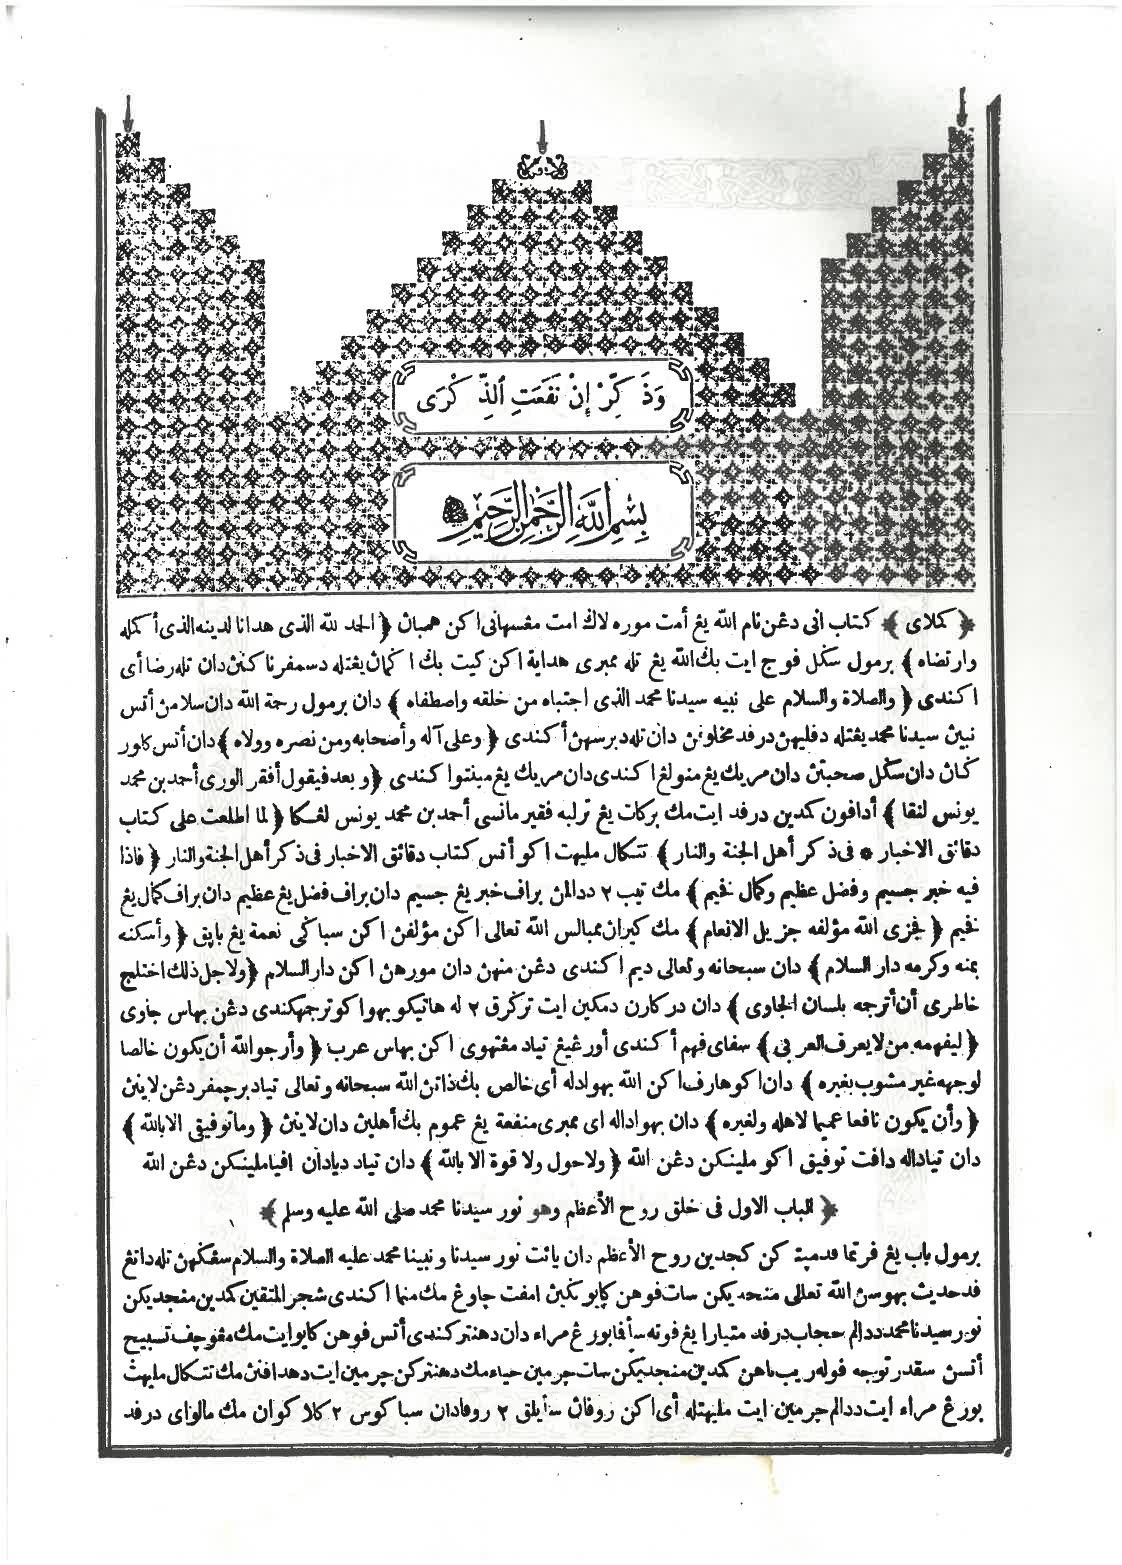 وَذَكِّرْ إِنْ نَفَعَتِ ٱلذِّكْرَى
بِسْمِ اللّٰهِ الرَّحْمٰنِ الرَّحِيْمِ
﴿ كملاى ﴾ كتاب انى دغن نام الله يغ أمت موره لاڬ امت مغسيهانى اكن همبان ﴿ الحمد لله الذى هدانا لدينه الذى أكمله
وارتضاه ﴾ برمول سكل فوج ايت بك الله يغ تله ممبرى هداية اكن كيت بك اڬمان يغتله دسمفرناكنن دان تله رضا أى
اكندى ﴿ والصلاة والسلام على نبيه سيدنا محمد الذى اجتباه من خلقه واصطفاه ﴾ دان برمول رحمة الله دان سلامن أتس
نبين سيدنا محمد يغتله دفليهن درفد مخلوقن دان تله دبرسهن أكندى ﴿ وعلى آله وأصحابه ومن نصره وولاه ﴾ دان أتس كلور
كان دان سكل صحبتن دان مريك يغ منولغ اكندى دان مريك يغ ممبنتوا كندى ﴿ وبعد فيقول أفقر الورى أحمد بن محمد
يونس لنقا ﴾ أدافون كمدين درفد ايت مك بركات يغ ترلبه فقير مانسى أحمد بن محمد يونس لغكا ﴿ لما اطلعت على كتاب
دقائق الاخبار * فى ذكر أهل الجنة والنار ﴾ تتكال مليهت اكو أتس كتاب دقائق الاخبار فى ذكر أهل الجنة والنار ﴿ فاذا
فيه خبر جسيم وفضل عظيم وكمال فخيم ﴾ مك تيب ٢ ددالمن براف خبر يغ جسيم دان براف فضل يغ عظيم دان براف كمال يغ
فخيم ﴿ فجزى الله مؤلفه جزيل الانعام ﴾ مك كيران ممبالس الله تعالى اكن مؤلفن اكن سباكى نعمة يغ بايق ﴿ وأسكنه
بمنه وكرمه دار السلام ﴾ دان سبحانه وتعالى ديم اكندى دغن منهن دان مورهن اكن دار السلام ﴿ ولاجل ذلك اختلج
خاطرى أن أترجمه بلسان الجاوى ﴾ دان دركارن دمكين ايت تركرق ٢ له هاتيكو بهوا كو ترجمهكندى دغن بهاس جاوى
﴿ ليفهمه من لا يعرف العربى ﴾ سفاى فهم أكندى أورغيغ تياد مغتهوى اكن بهاس عرب ﴿ وأرجو الله أن يكون خالصا
لوجهه غير مشوب بغيره ﴾ دان اكو هارف اكن الله بهوادله أى خالص بك ذاتن الله سبحانه وتعالى تياد برچمفر دغن لاينن
﴿ وأن يكون نافعا عميما لاهله ولغيره ﴾ دان بهواداله اى ممبرى منفعة يغ عموم بك أهلين دان لاينن ﴿ وما توفيقى الا بالله ﴾
دان تياداله دافت توفيق اكو ملينكن دغن الله ﴿ ولا حول ولا قوة الا بالله ﴾ دان تياد ديادان افيا ملينكن دغن الله
﴿ الباب الاول فى خلق روح الأعظم وهو نور سيدنا محمد صلى الله عليه وسلم ﴾
برمول باب يغ فرتما فد مپتاكن كجدين روح الأعظم دان يائت نور سيدنا ونبينا محمد عليه الصلاة والسلام سڠكهن تله داتغ
فد حديث بهوسن الله تعالى منجديكن سات فوهن كايو تكبن امفت چاوغ مك منما اكندى شجر المتقين كمدين منجديكن
نور سيدنا محمد ددالم حجاب درفد متيارا يغ فوته سأفما بورغ مراء دان دهنتركندى أتس فوهن كايو ايت مك مڠوچف تسبيح
أتسن سقدر توجه فوله ريب تاهن كمدين منجديكن سات چرمين حياء مك دهنتركن چرمين ايت دهدافنن مك تتكال مليهت
بورغ مراء ايت ددالم چرمين ايت مليهتله أى اكن روفان سأيلق ٢ روفا دان سباكوس ٢ كلاكوان مك مالواى درفد